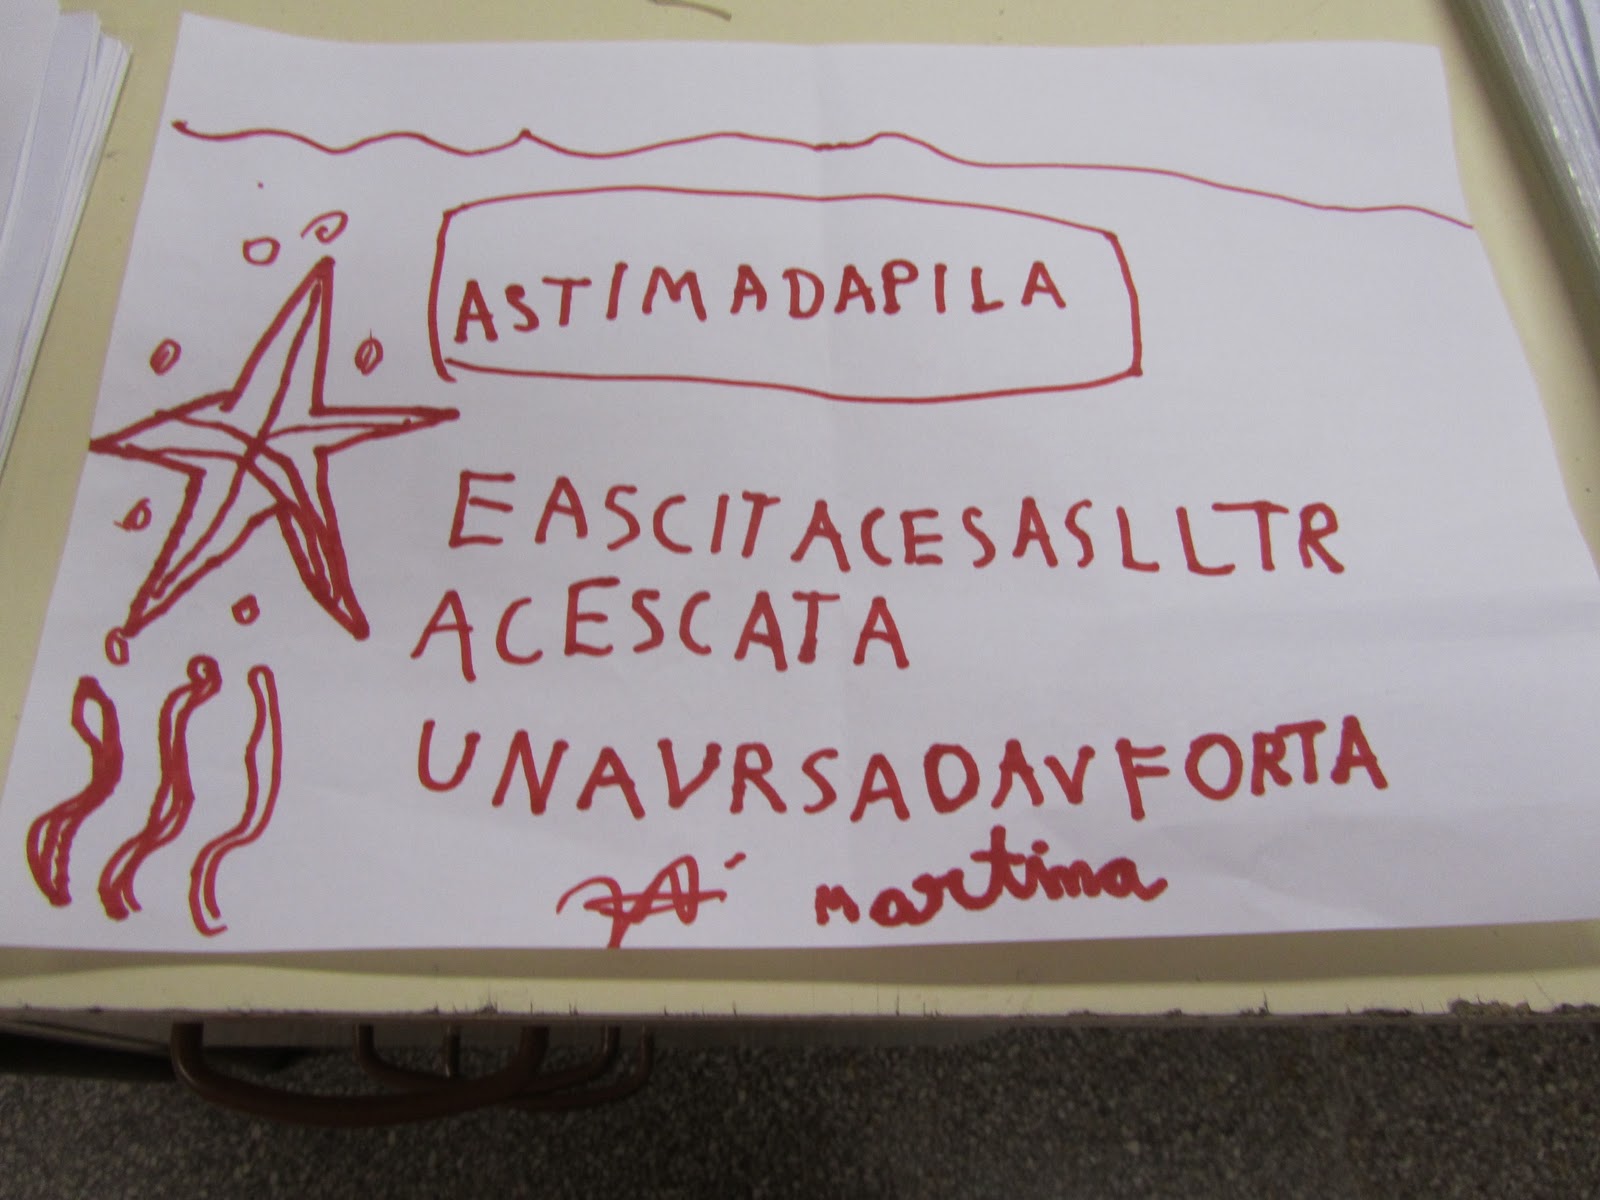 ASTIMADAPILA
EASCITACESASLLTR
ACESCATA
UNAVRSADAVFORTA
martina